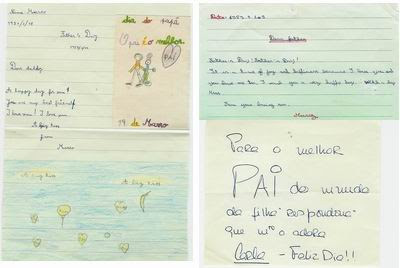 Nuno Marco
Father's Day
Dear daddy,
A happy day for you!
You are my best friend!
I love you! I love you
A big kiss
from
Marco
dia do papá
O pai é o melhor
PAI
19 de Março
A big kiss
A big kiss
Dear father
Father's Day! Father's Day!
It is a kind of joy and happiness because I love you and
you love me too. I wish you a very happy day. A
kiss
from your loving son.
Para o melhor
PAI do mundo
da filha
que o adora
Carla - Feliz Dia!!